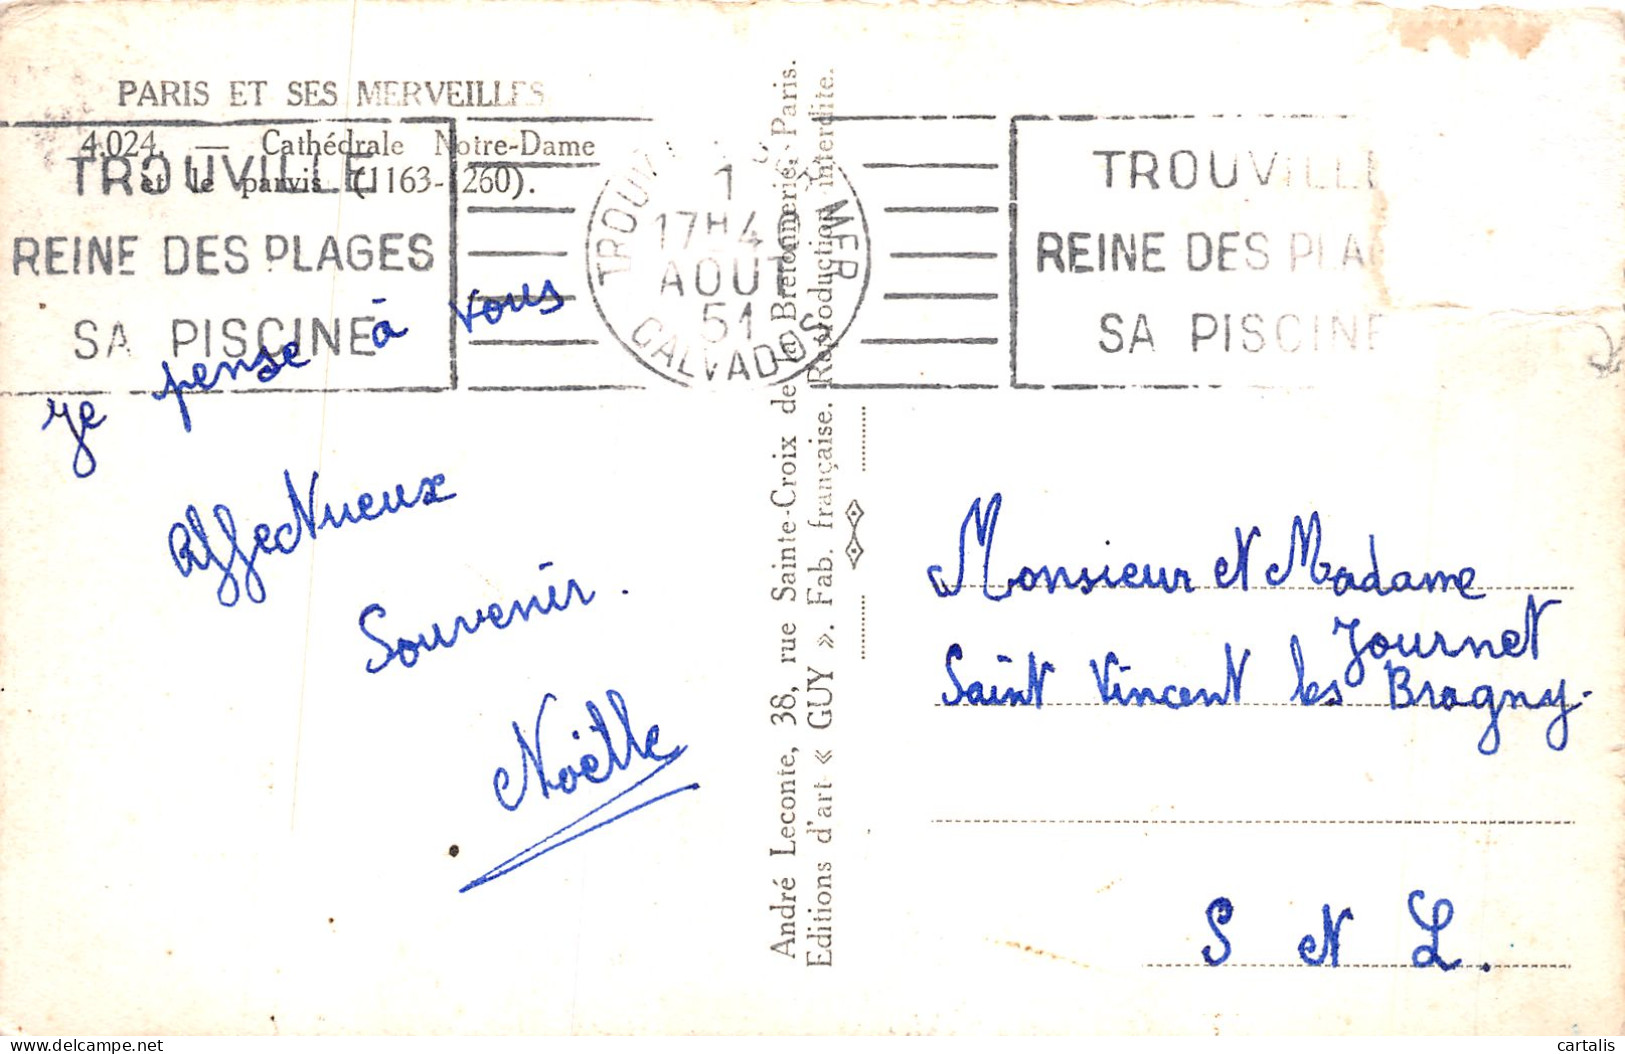 PARIS ET SES MERVEILLES
4.024. — Cathédrale Notre-Dame
et le parvis (1163-1260).
TROUVILLE
REINE DES PLAGES
SA PISCINE
TROUV MER
1
17H4
AOUT
51
CALVADOS
TROUVILLE
REINE DES PLA
SA PISCINE
je pense à vous
Affectueux
Souvenir.
Noëlle
André Leconte, 38, rue Sainte-Croix de la Bretonnerie, Paris.
Editions d'art « GUY ». Fab. française. Reproduction interdite.
Monsieur et Madame
Journet
Saint Vincent les Bragny.
S et L.
cartalis